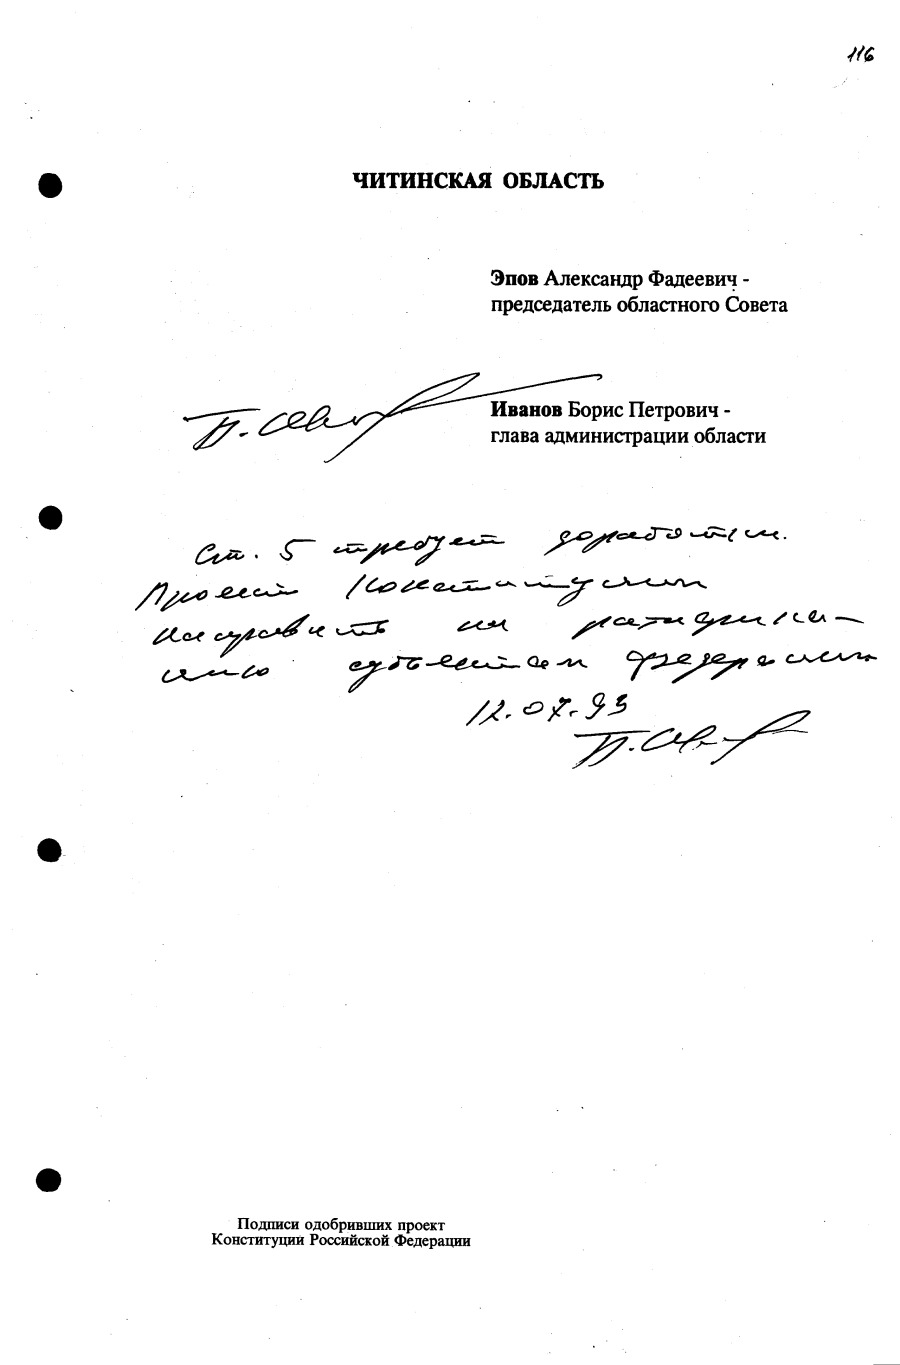 116
ЧИТИНСКАЯ ОБЛАСТЬ
Эпов Александр Фадеевич -
председатель областного Совета
Б. Иванов
Иванов Борис Петрович -
глава администрации области
Ст. 5 требует доработки.
Проект Конституции
направить на ратифика-
цию субъектам федерации
12.07.93
Б. Иванов
Подписи одобривших проект
Конституции Российской Федерации